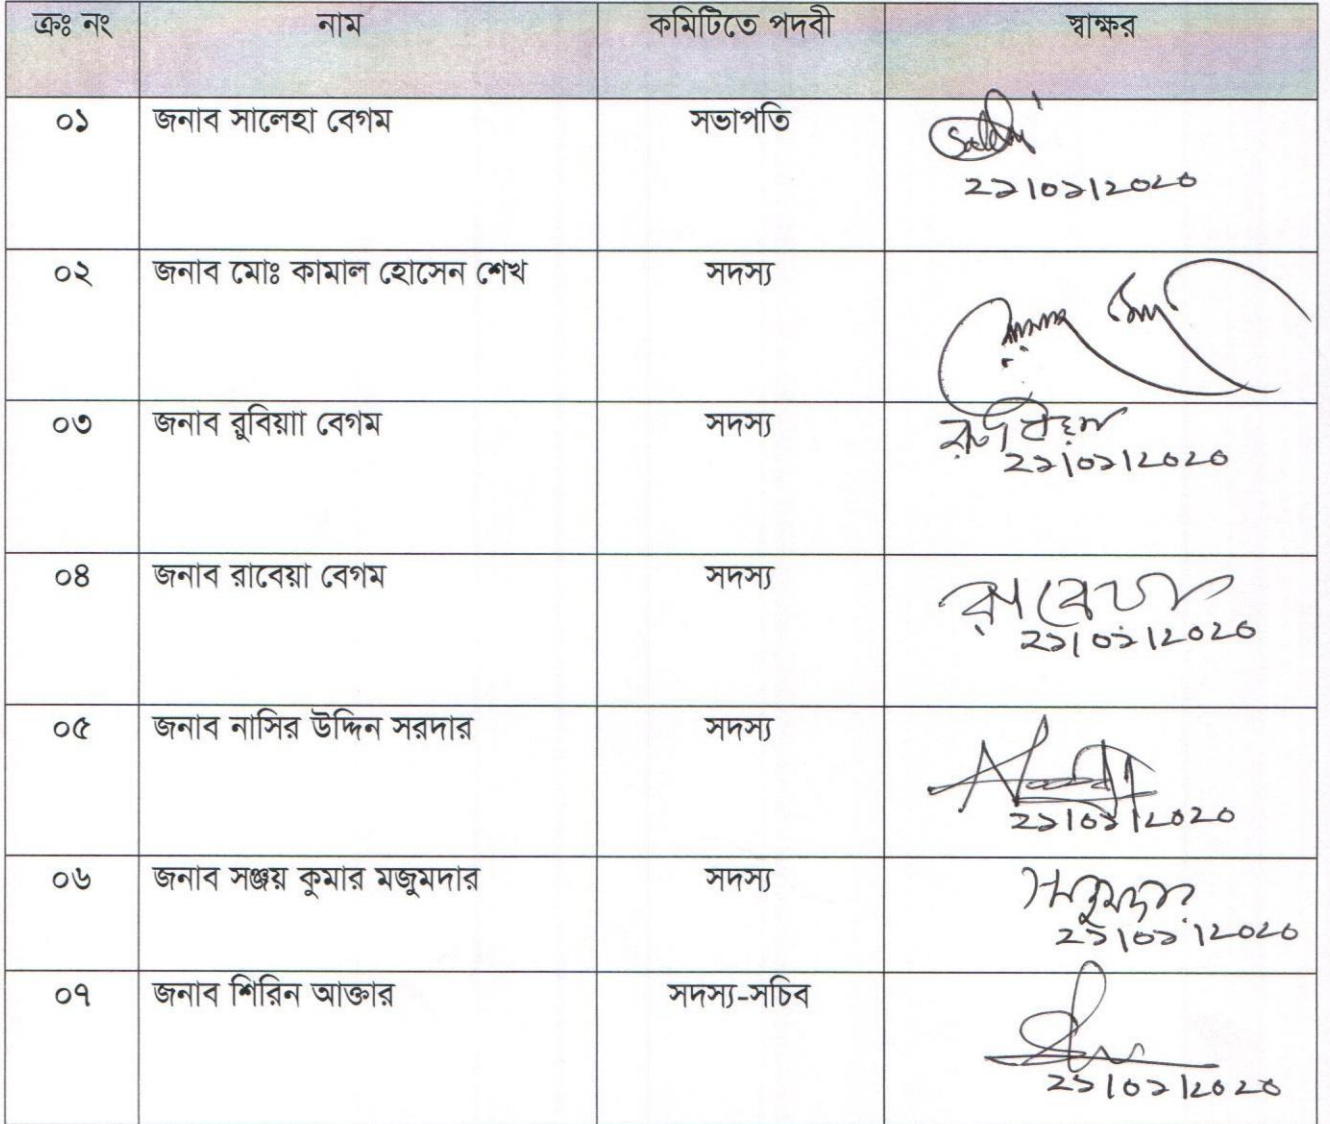 ক্রঃ নং নাম কমিটিতে পদবী স্বাক্ষর
০১ জনাব সালেহা বেগম সভাপতি
২১/০১/২০২০
০২ জনাব মোঃ কামাল হোসেন শেখ সদস্য
০৩ জনাব রুবিয়াা বেগম সদস্য
২১/০১/২০২০
০৪ জনাব রাবেয়া বেগম সদস্য রাবেয়া
২১/০১/২০২০
০৫ জনাব নাসির উদ্দিন সরদার সদস্য
২১/০১/২০২০
০৬ জনাব সঞ্জয় কুমার মজুমদার সদস্য
২১/০১/২০২০
০৭ জনাব শিরিন আক্তার সদস্য-সচিব
২১/০১/২০২০